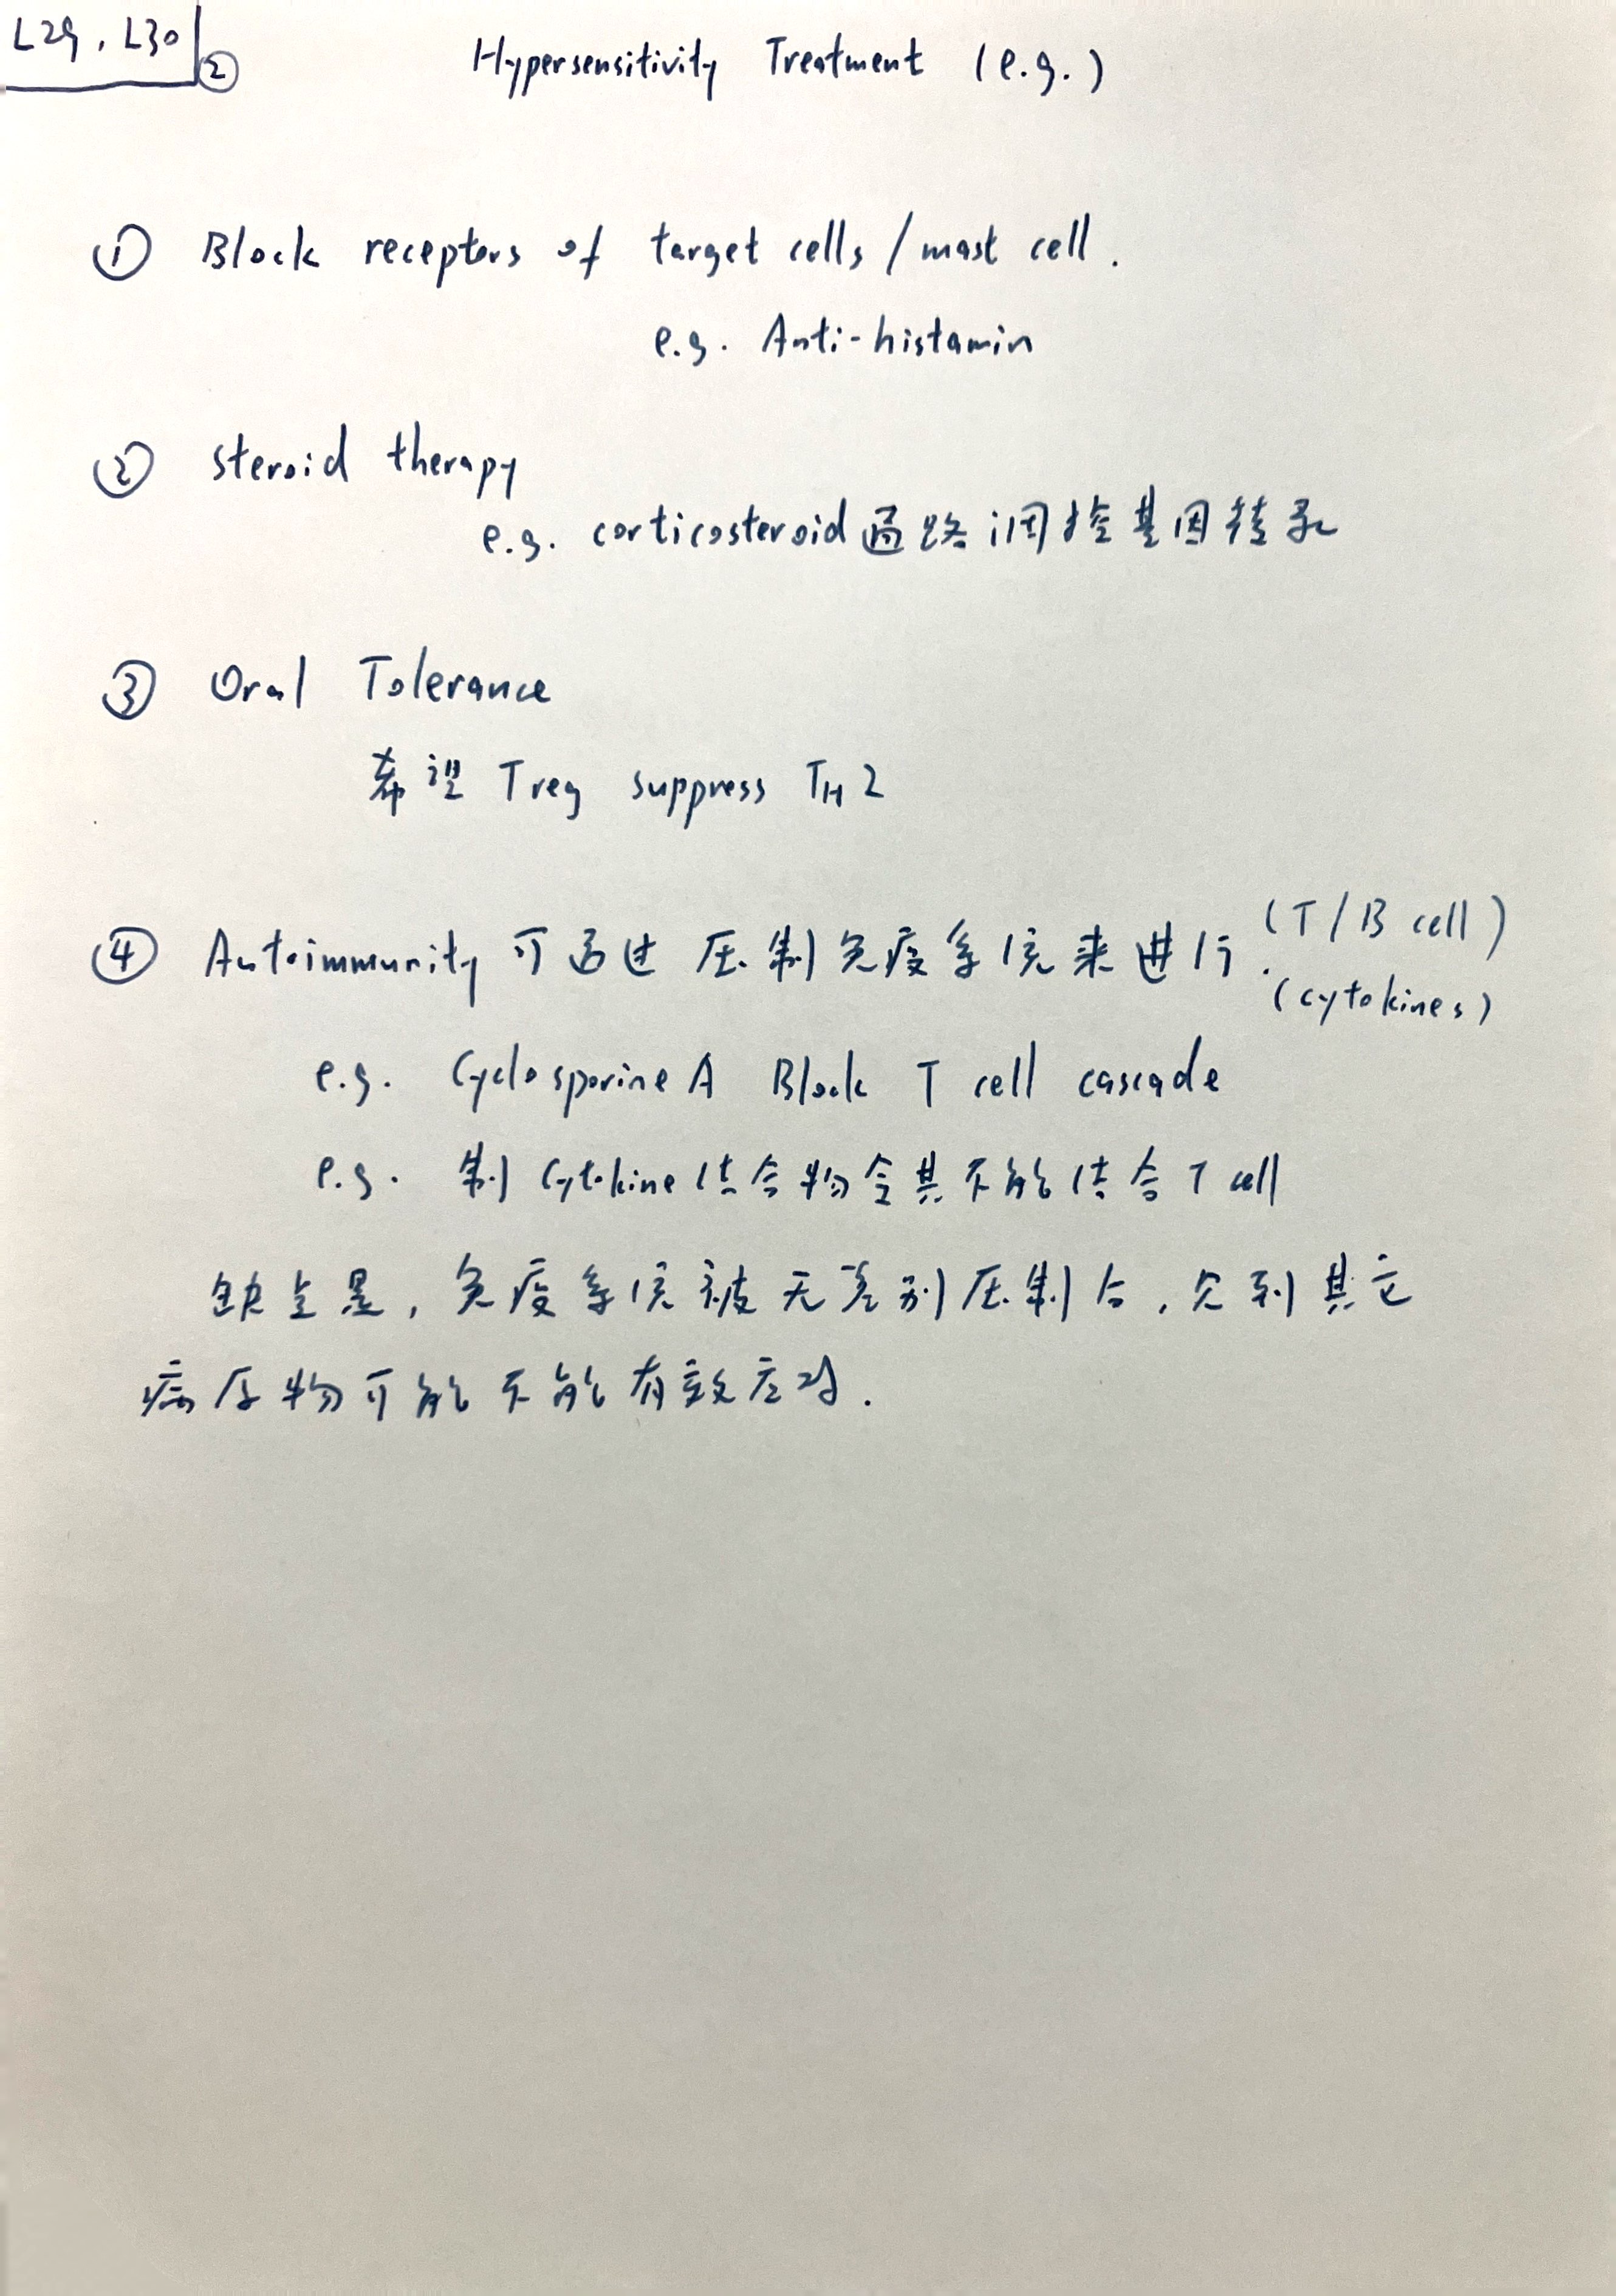 L29, L30 ②
Hypersensitivity Treatment (e.g.)
① Block receptors of target cells / mast cell.
e.g. Anti-histamin
② steroid therapy
e.g. corticosteroid 通路调控基因转录
③ Oral Tolerance
希望 Treg suppress TH2
④ Autoimmunity 可通过 压制免疫系统来进行. (T/B cell)
(cytokines)
e.g. Cyclosporine A Block T cell cascade
e.g. 制 Cytokine 结合物令其不能结合 T cell
缺点是, 免疫系统被无差别压制后, 见到其它
病原物可能不能有效应对.